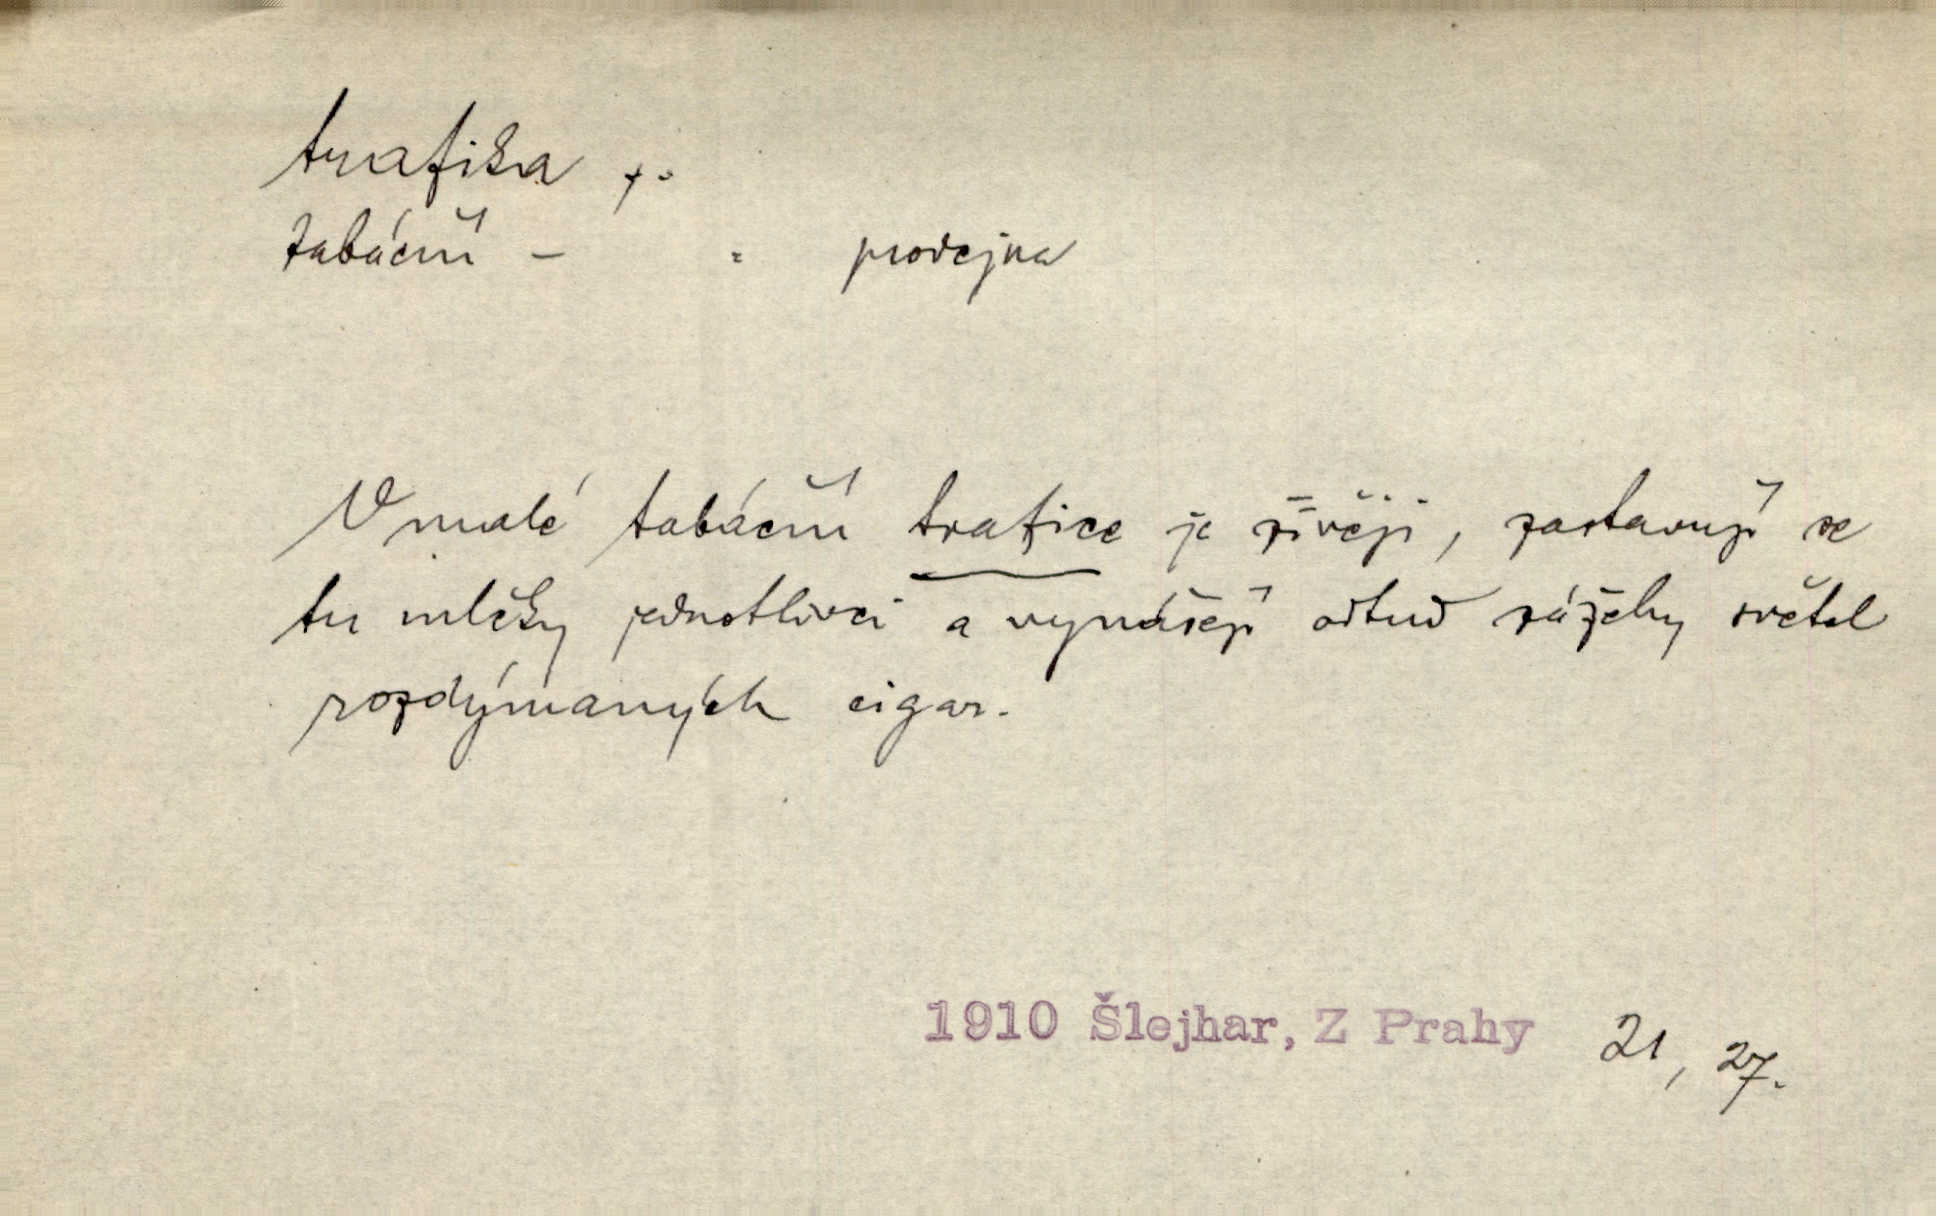 trafika f.
tabáční – = prodejna
V malé tabáční trafice je živěji, zastavují se
tu mlčky jednotlivci a vynášejí odtud zážehy světel
rozdýmaných cigar.
1910 Šlejhar, Z Prahy 21, 27.